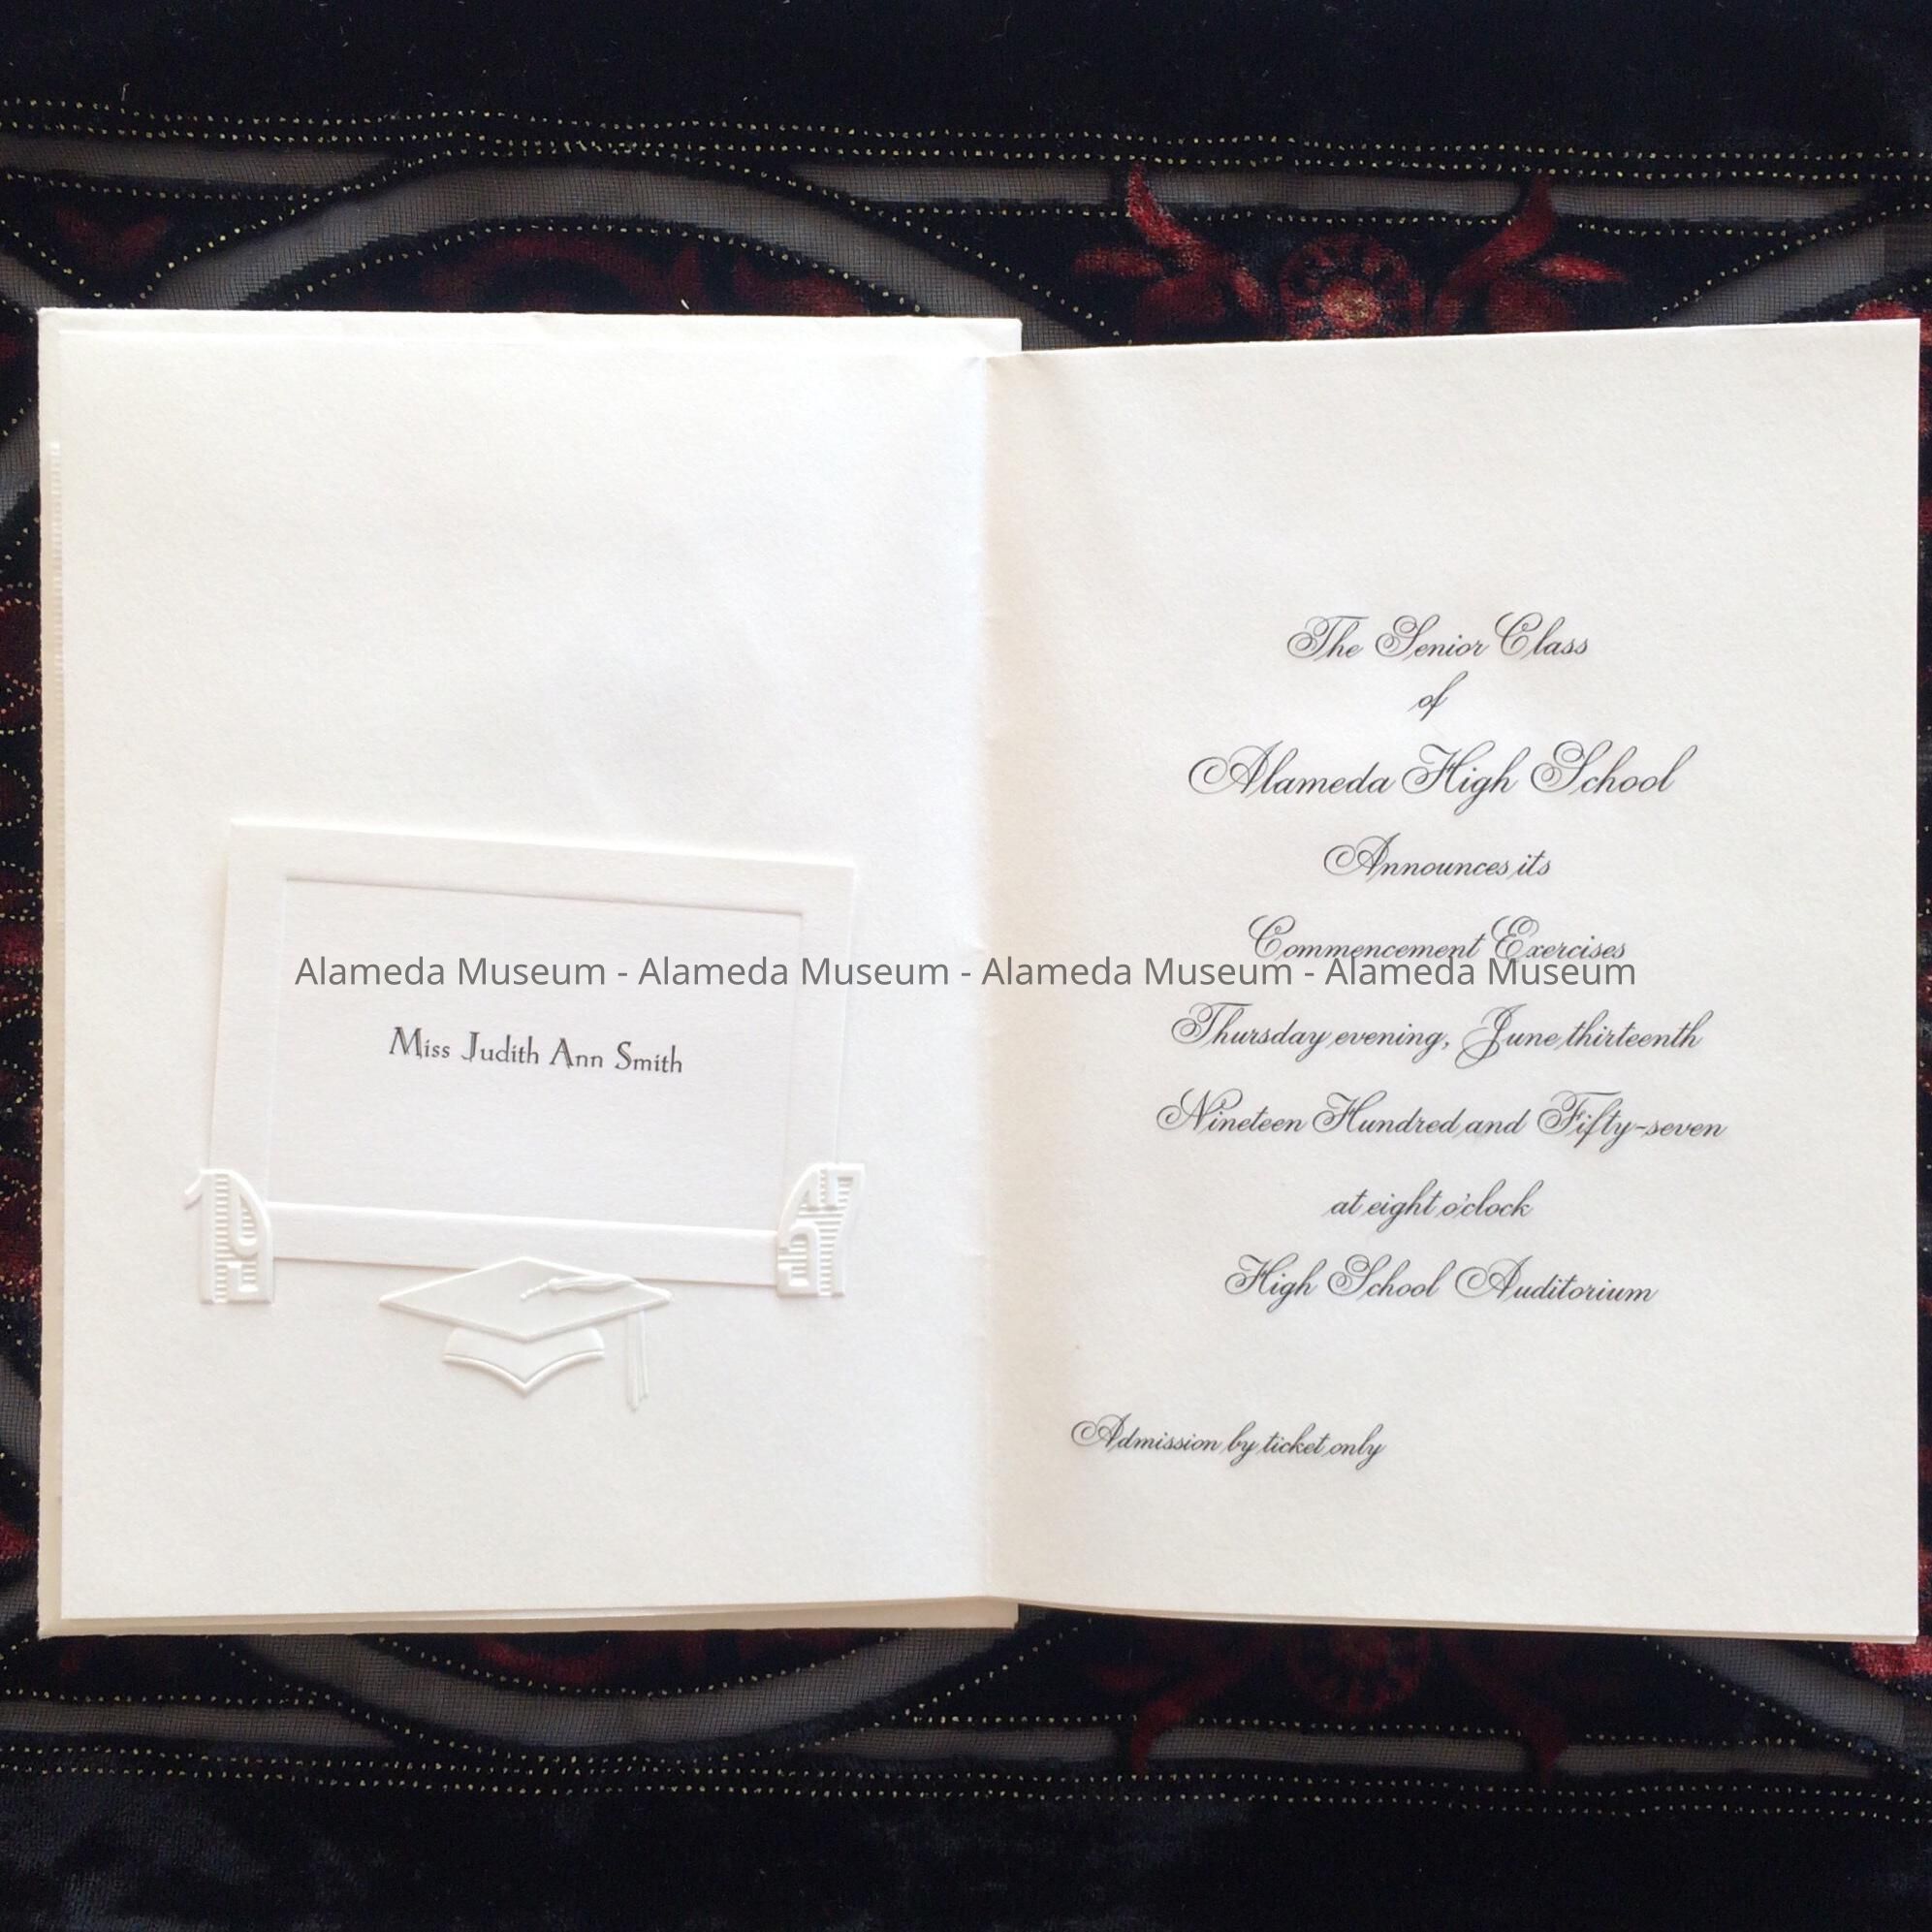 Miss Judith Ann Smith
19
57
The Senior Class
of
Alameda High School
Announces its
Commencement Exercises
Thursday evening, June thirteenth
Nineteen Hundred and Fifty-seven
at eight o'clock
High School Auditorium
Admission by ticket only
Alameda Museum - Alameda Museum - Alameda Museum - Alameda Museum